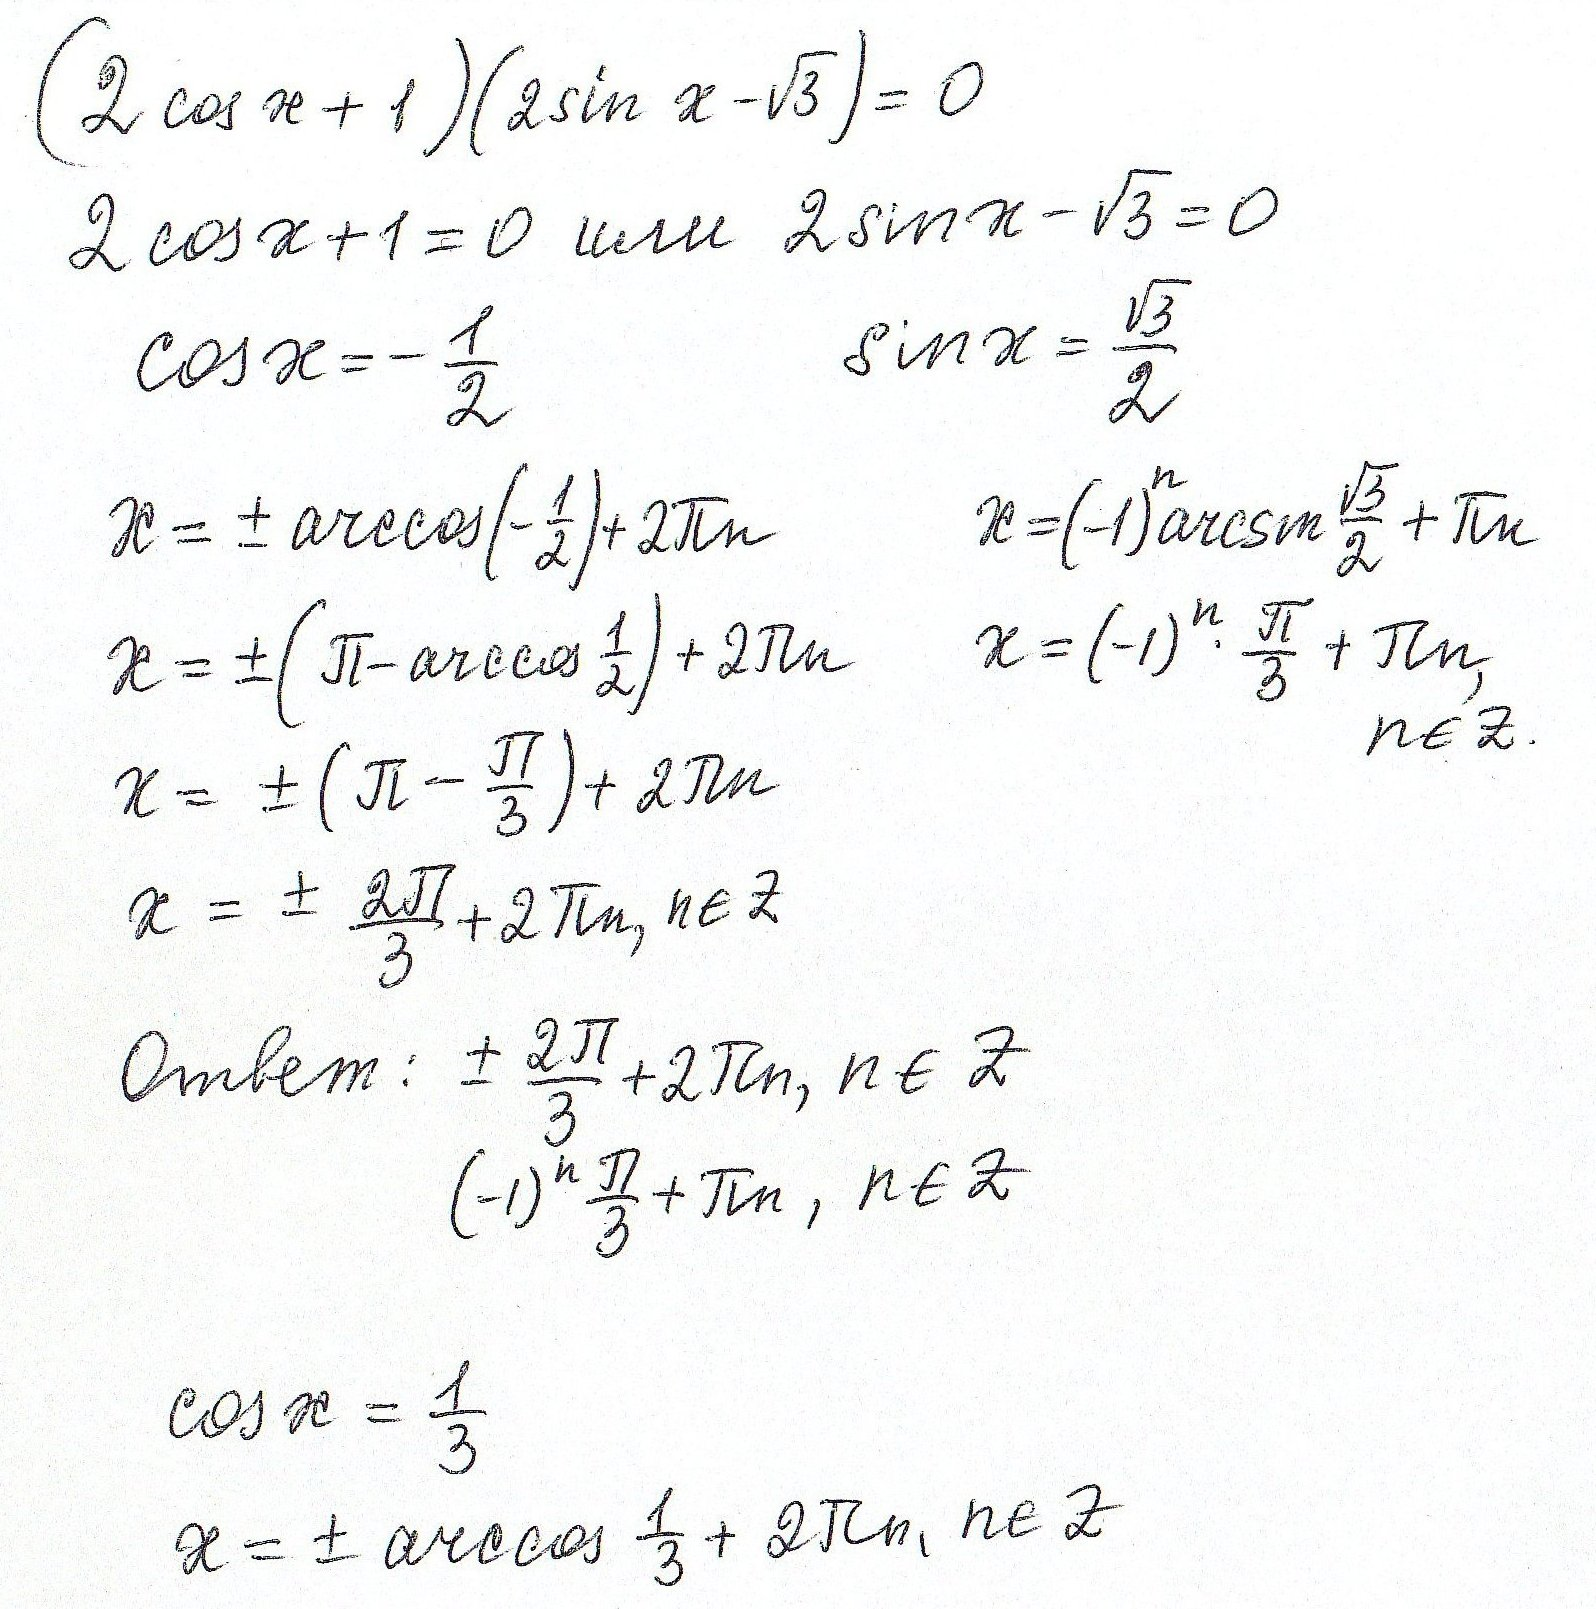 (2 cos x + 1)(2 sin x - √3) = 0
2 cos x + 1 = 0 или 2 sin x - √3 = 0
cos x = - 1/2    sin x = √3/2
x = ± arccos(- 1/2) + 2πn    x = (-1)ⁿ arcsin √3/2 + πn
x = ± (π - arccos 1/2) + 2πn    x = (-1)ⁿ · π/3 + πn,
n ∈ Z.
x = ± (π - π/3) + 2πn
x = ± 2π/3 + 2πn, n ∈ Z
Ответ: ± 2π/3 + 2πn, n ∈ Z
(-1)ⁿ π/3 + πn, n ∈ Z
cos x = 1/3
x = ± arccos 1/3 + 2πn, n ∈ Z